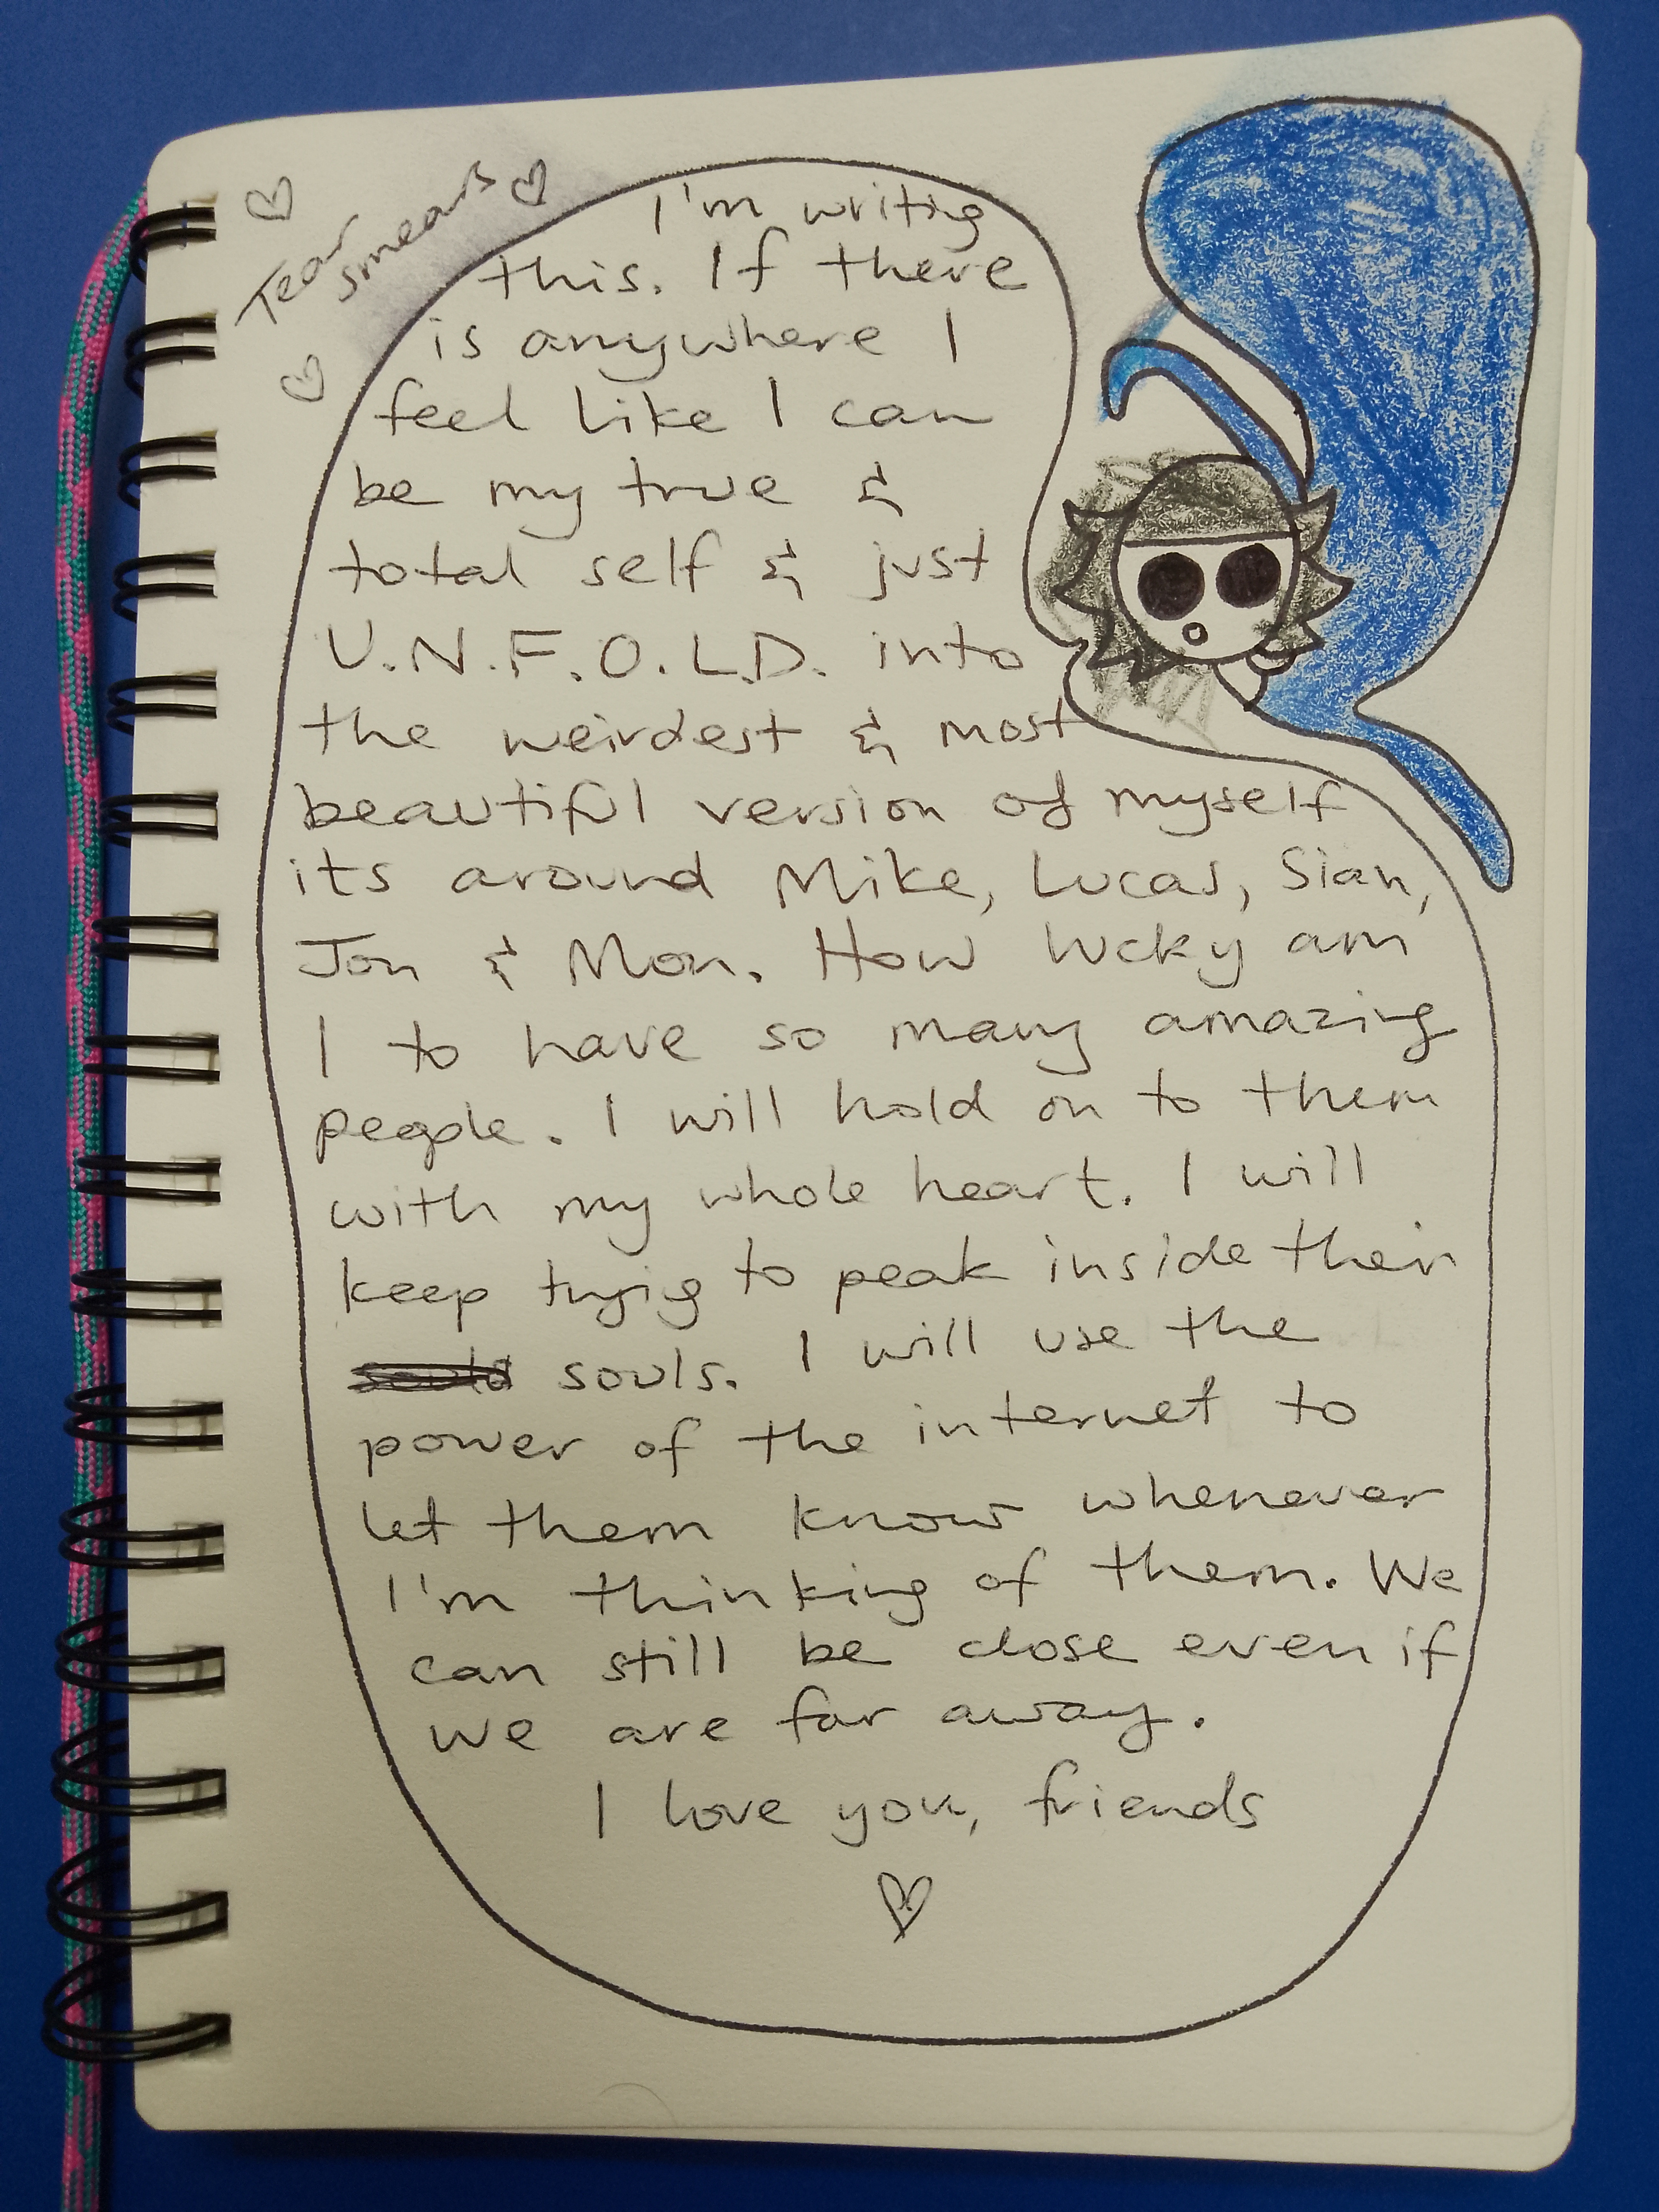 Tear
smears
I'm writing
this. If there
is anywhere I
feel like I can
be my true &
total self & just
U.N.F.O.L.D. into
the weirdest & most
beautiful version of myself
its around Mike, Lucas, Sian,
Jon & Mon. How lucky am
I to have so many amazing
people. I will hold on to them
with my whole heart. I will
keep trying to peak inside their
souls. I will use the
power of the internet to
let them know whenever
I'm thinking of them. We
can still be close even if
we are far away.
I love you, friends